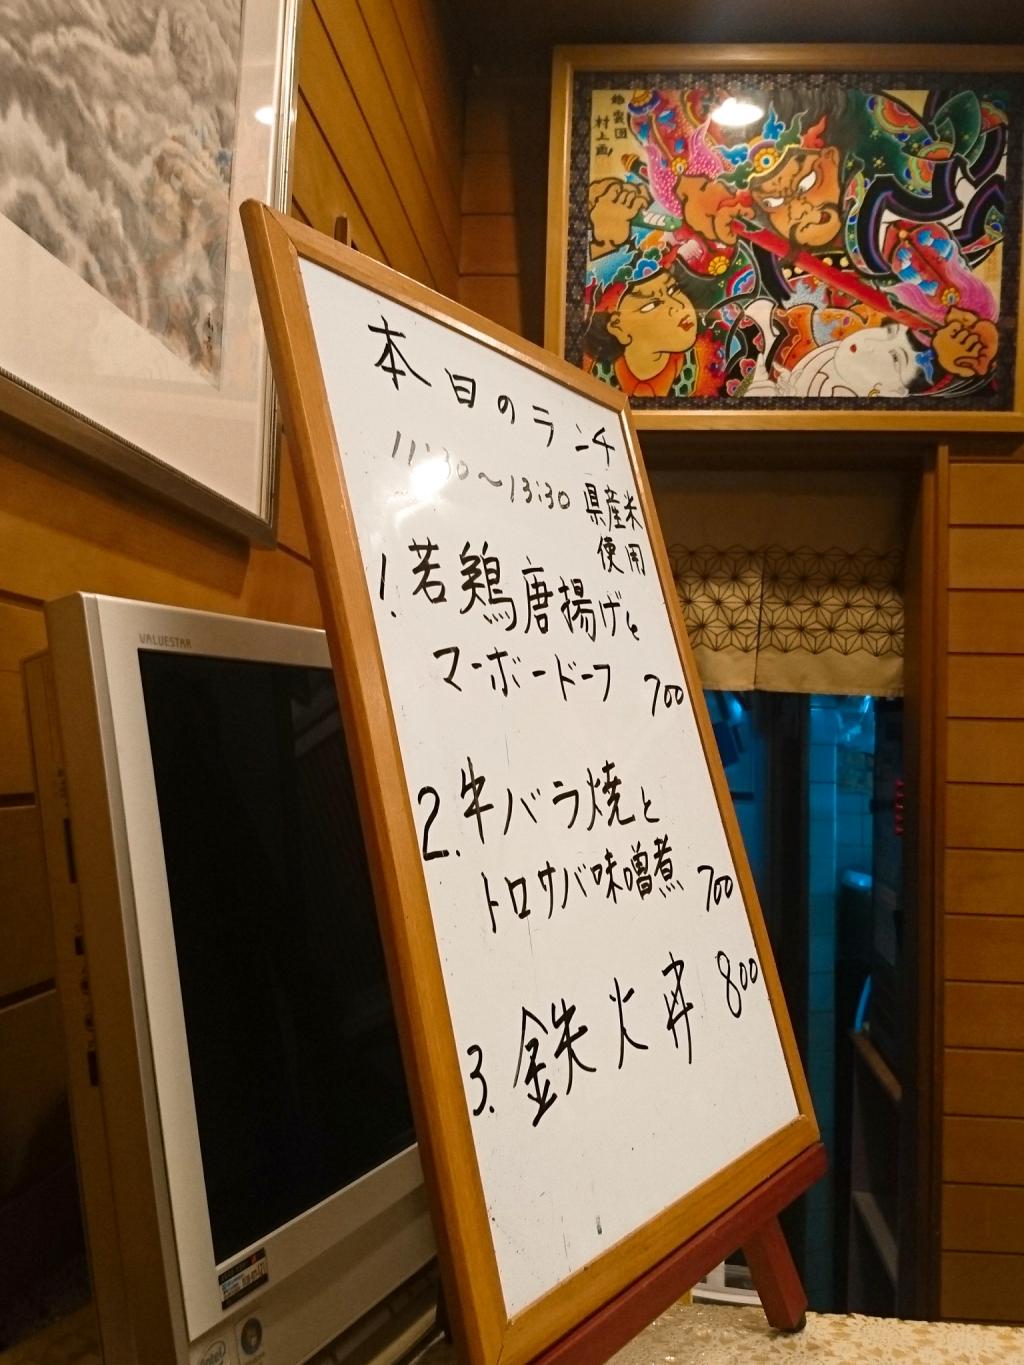 本日のランチ
11:30～13:30
県産米
使用
1.若鶏唐揚げと
マーボードーフ 700
2.牛バラ焼と
トロサバ味噌煮 700
3.鉄火丼 800
VALUESTAR
村上画
intel